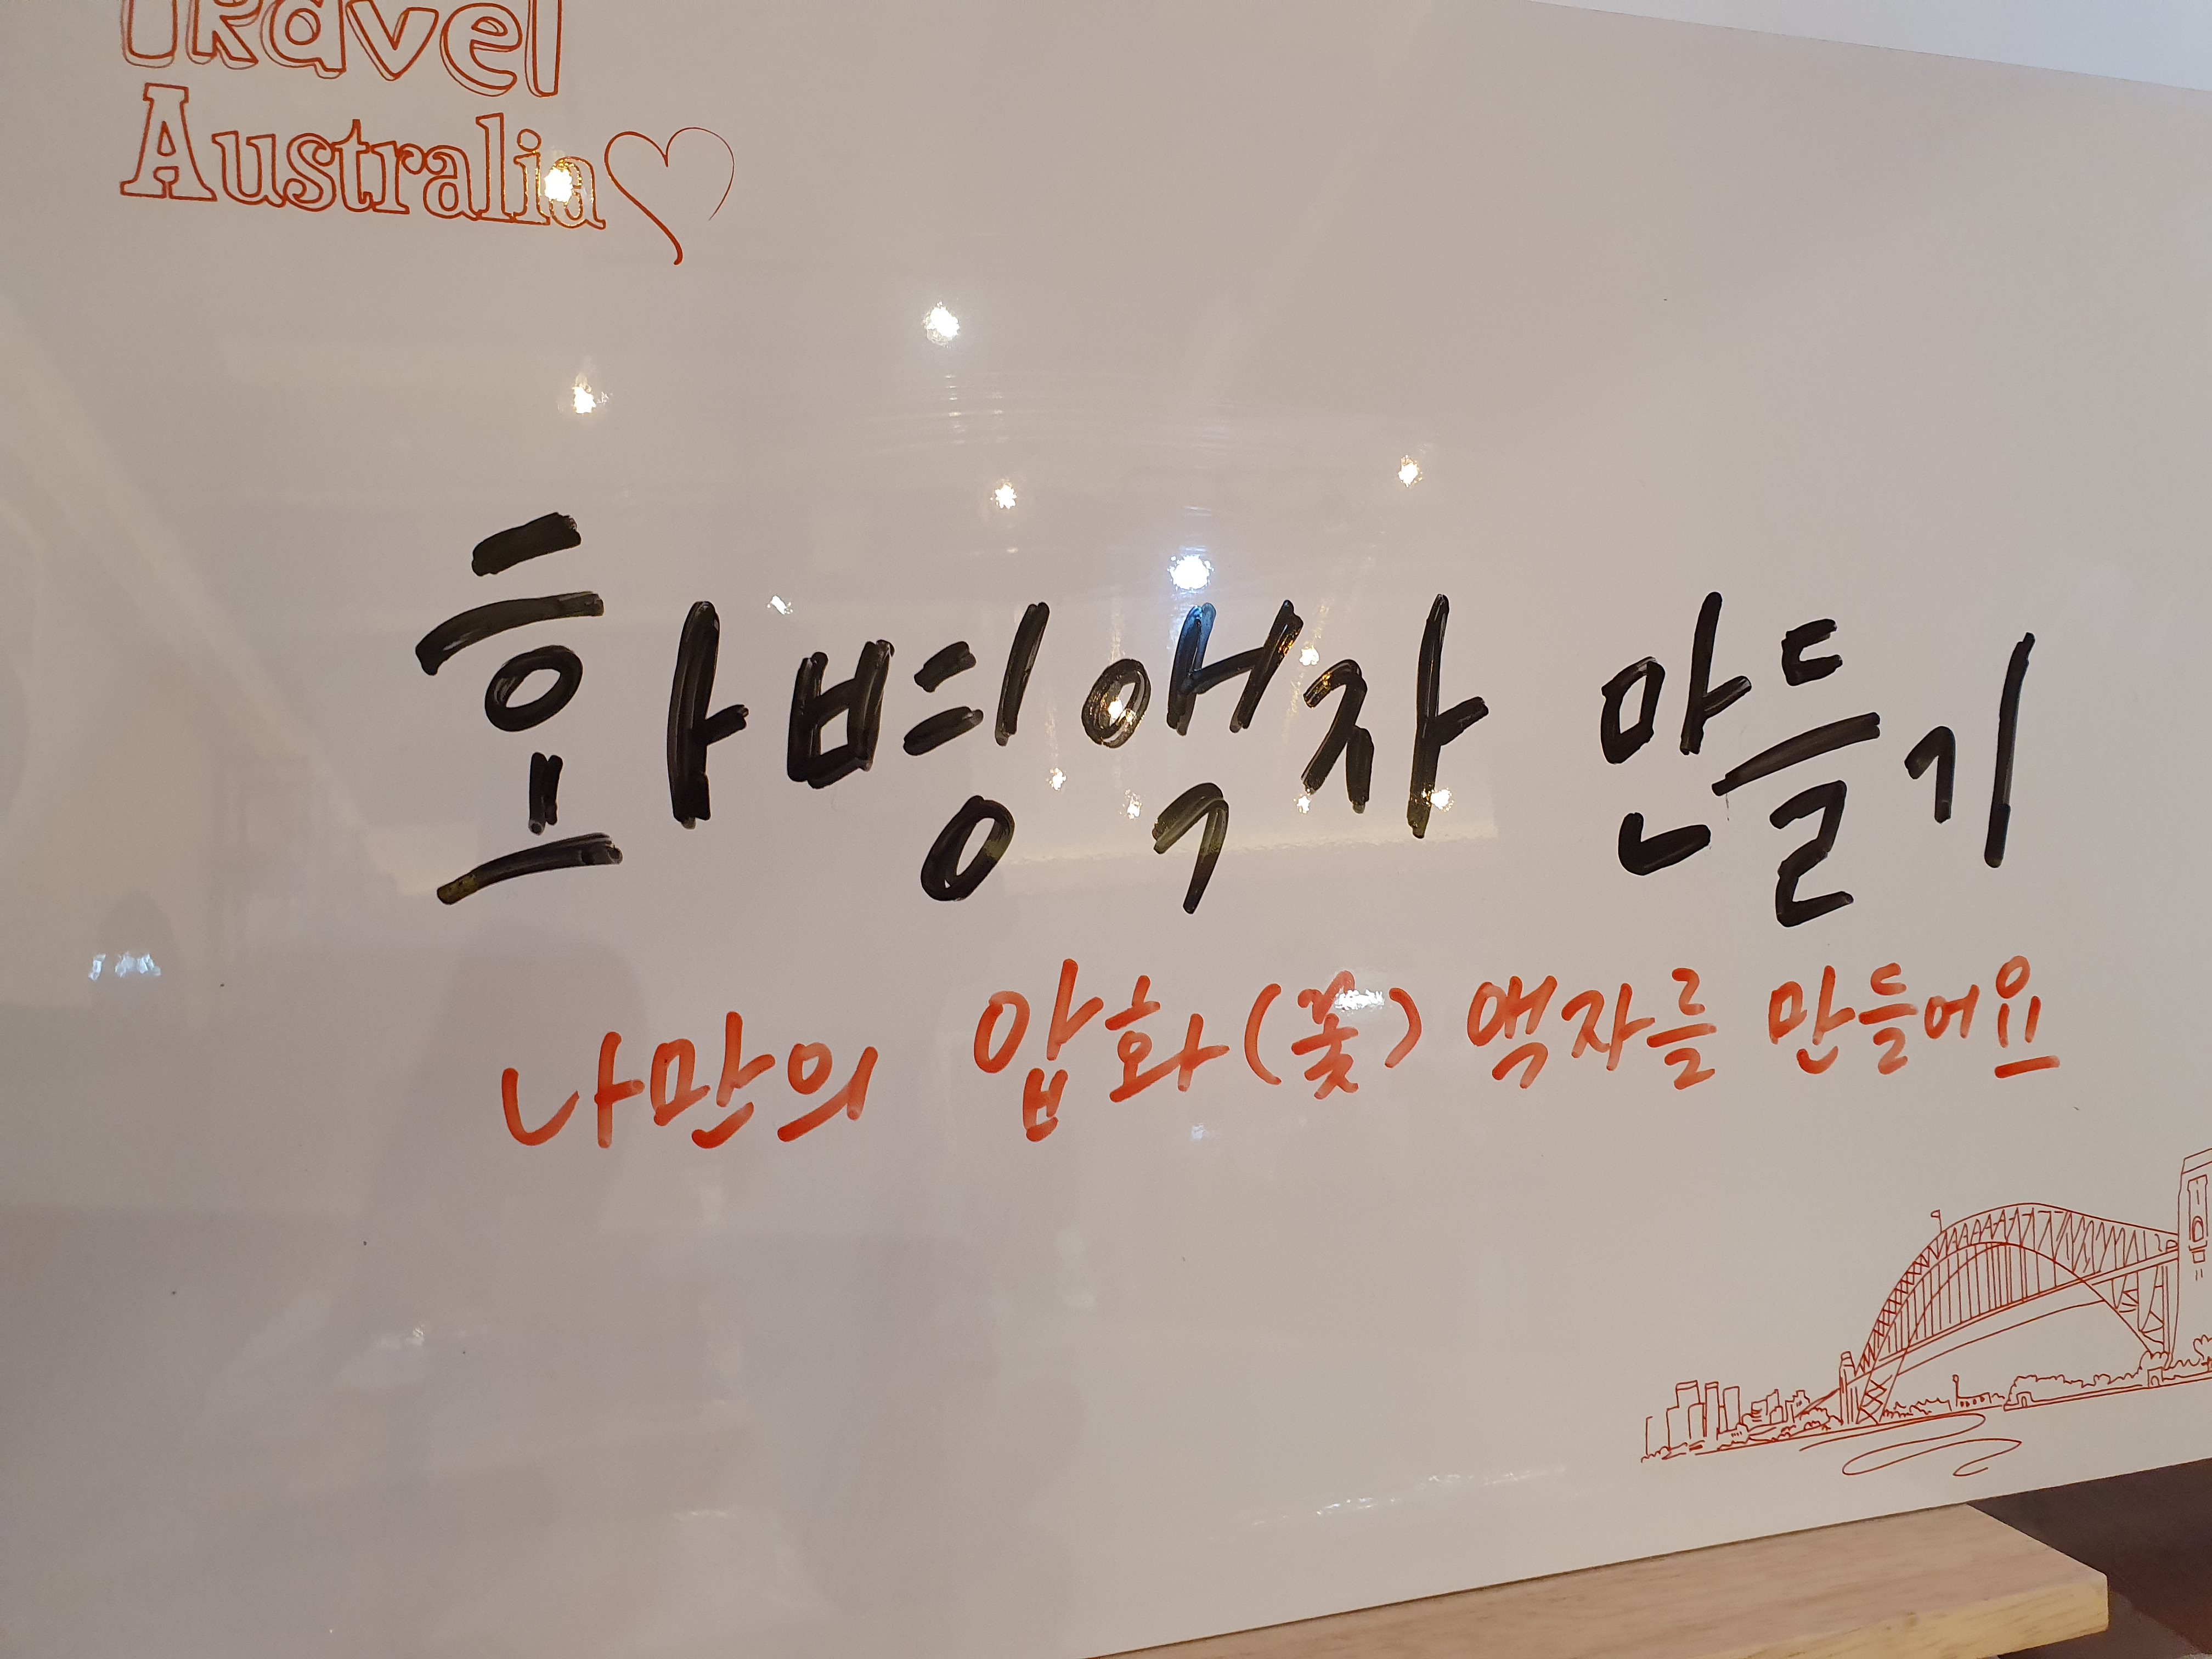 Travel
Australia
화병액자 만들기
나만의 압화(꽃) 액자를 만들어요